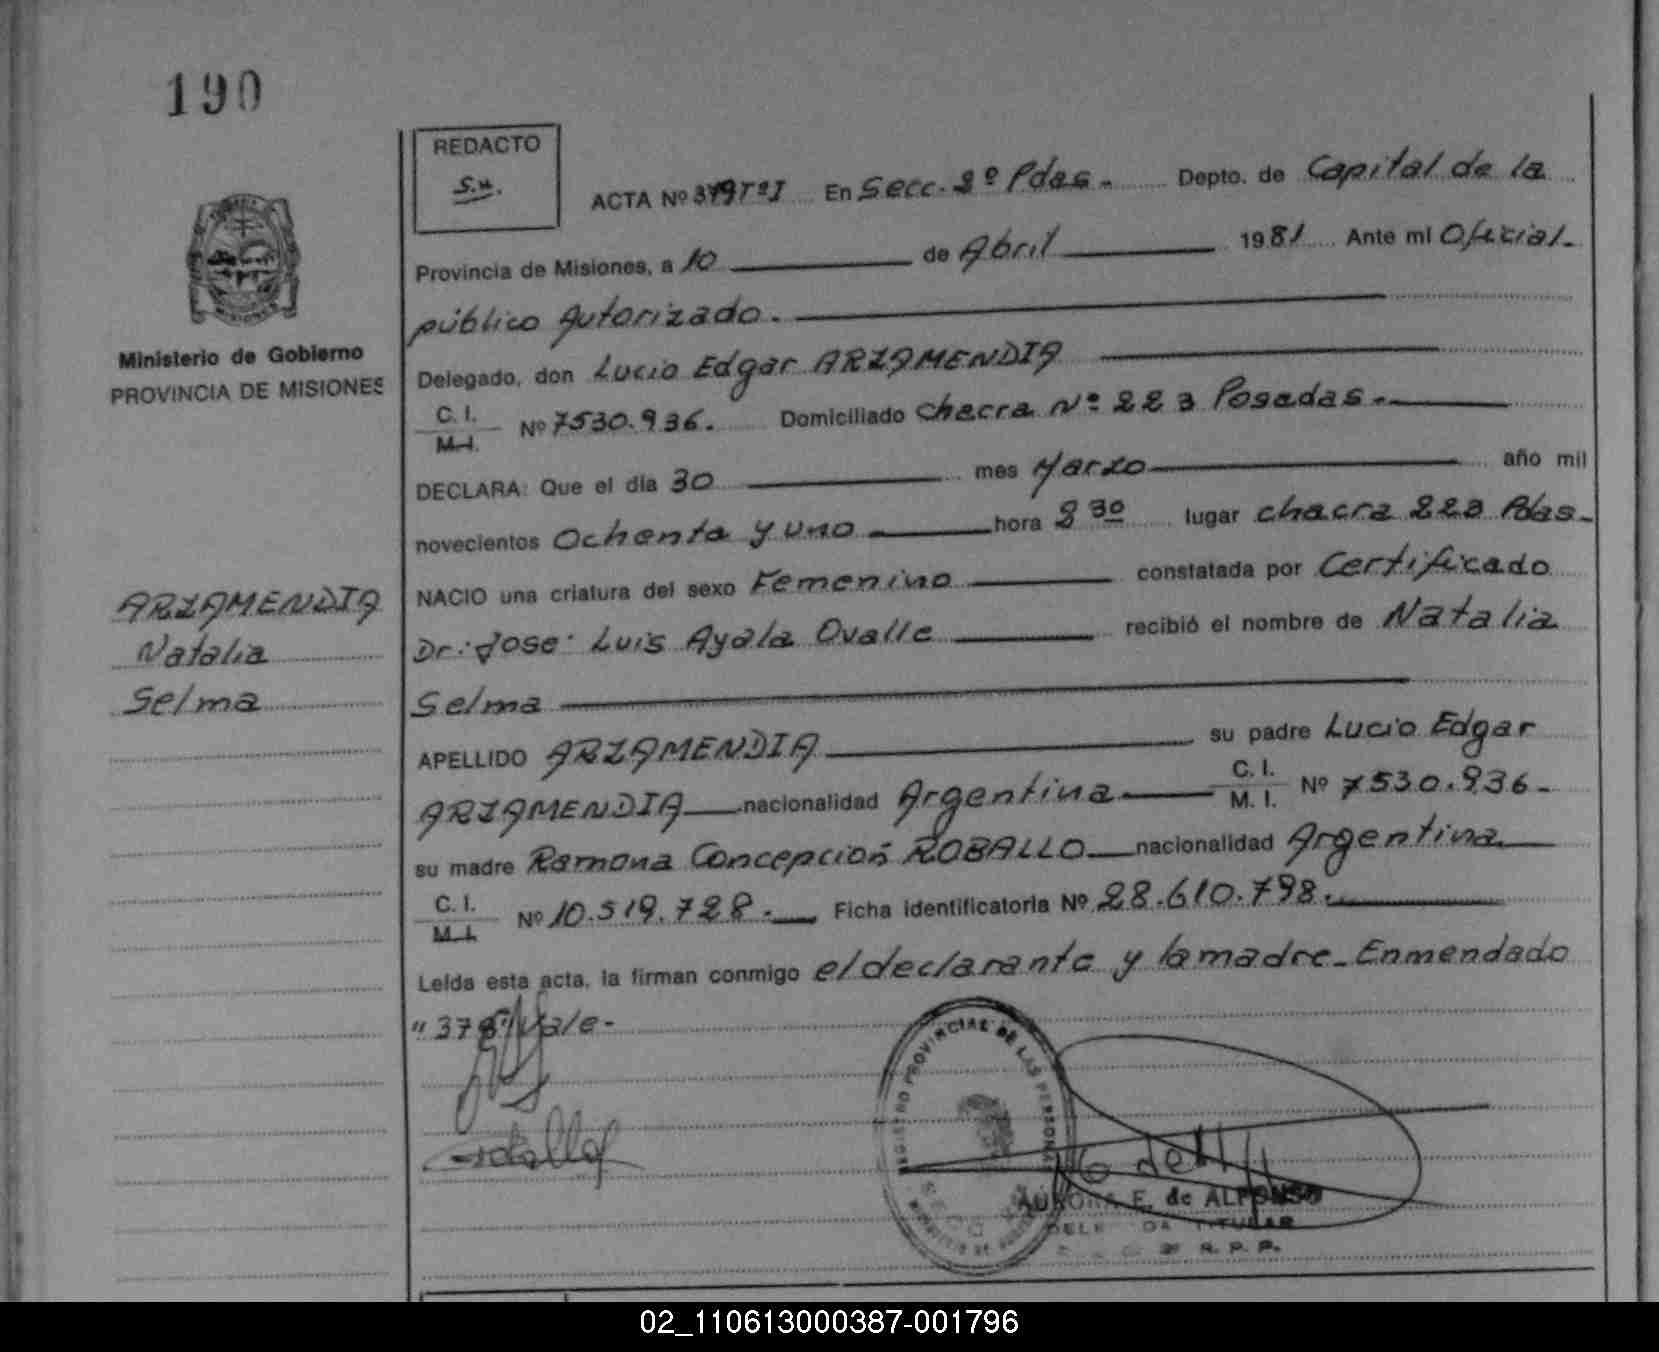 190
REDACTO
S.N.
ACTA Nº 379 Tº I En Secc. 2º Pdas. Depto. de Capital de la
Provincia de Misiones, a 10 de Abril 1981 Ante mi Oficial
público Autorizado.
Ministerio de Gobierno
PROVINCIA DE MISIONES
Delegado, don Lucio Edgar ARZAMENDIA
C. I.
M.I. Nº 7530.936. Domiciliado chacra Nº 223 Posadas.
DECLARA: Que el día 30 mes Marzo año mil
novecientos Ochenta y uno hora 8 30 lugar chacra 223 Pdas.
NACIO una criatura del sexo Femenino constatada por Certificado
Dr. Jose Luis Ayala Ovalle recibió el nombre de Natalia
Selma
ARZAMENDIA
Natalia
Selma
APELLIDO ARZAMENDIA su padre Lucio Edgar
ARZAMENDIA nacionalidad Argentina C. I.
M. I. Nº 7530.936-
su madre Ramona Concepción ROBALLO nacionalidad Argentina
C. I.
M.I. Nº 10.519.728. Ficha identificatoria Nº 28.610.798.
Leída esta acta, la firman conmigo el declarante y la madre-Enmendado
"379" Vale-
REGISTRO PROVINCIAL DE LAS PERSONAS
AURORA E. de ALFONSO
TITULAR
R. P. P.
02_110613000387-001796